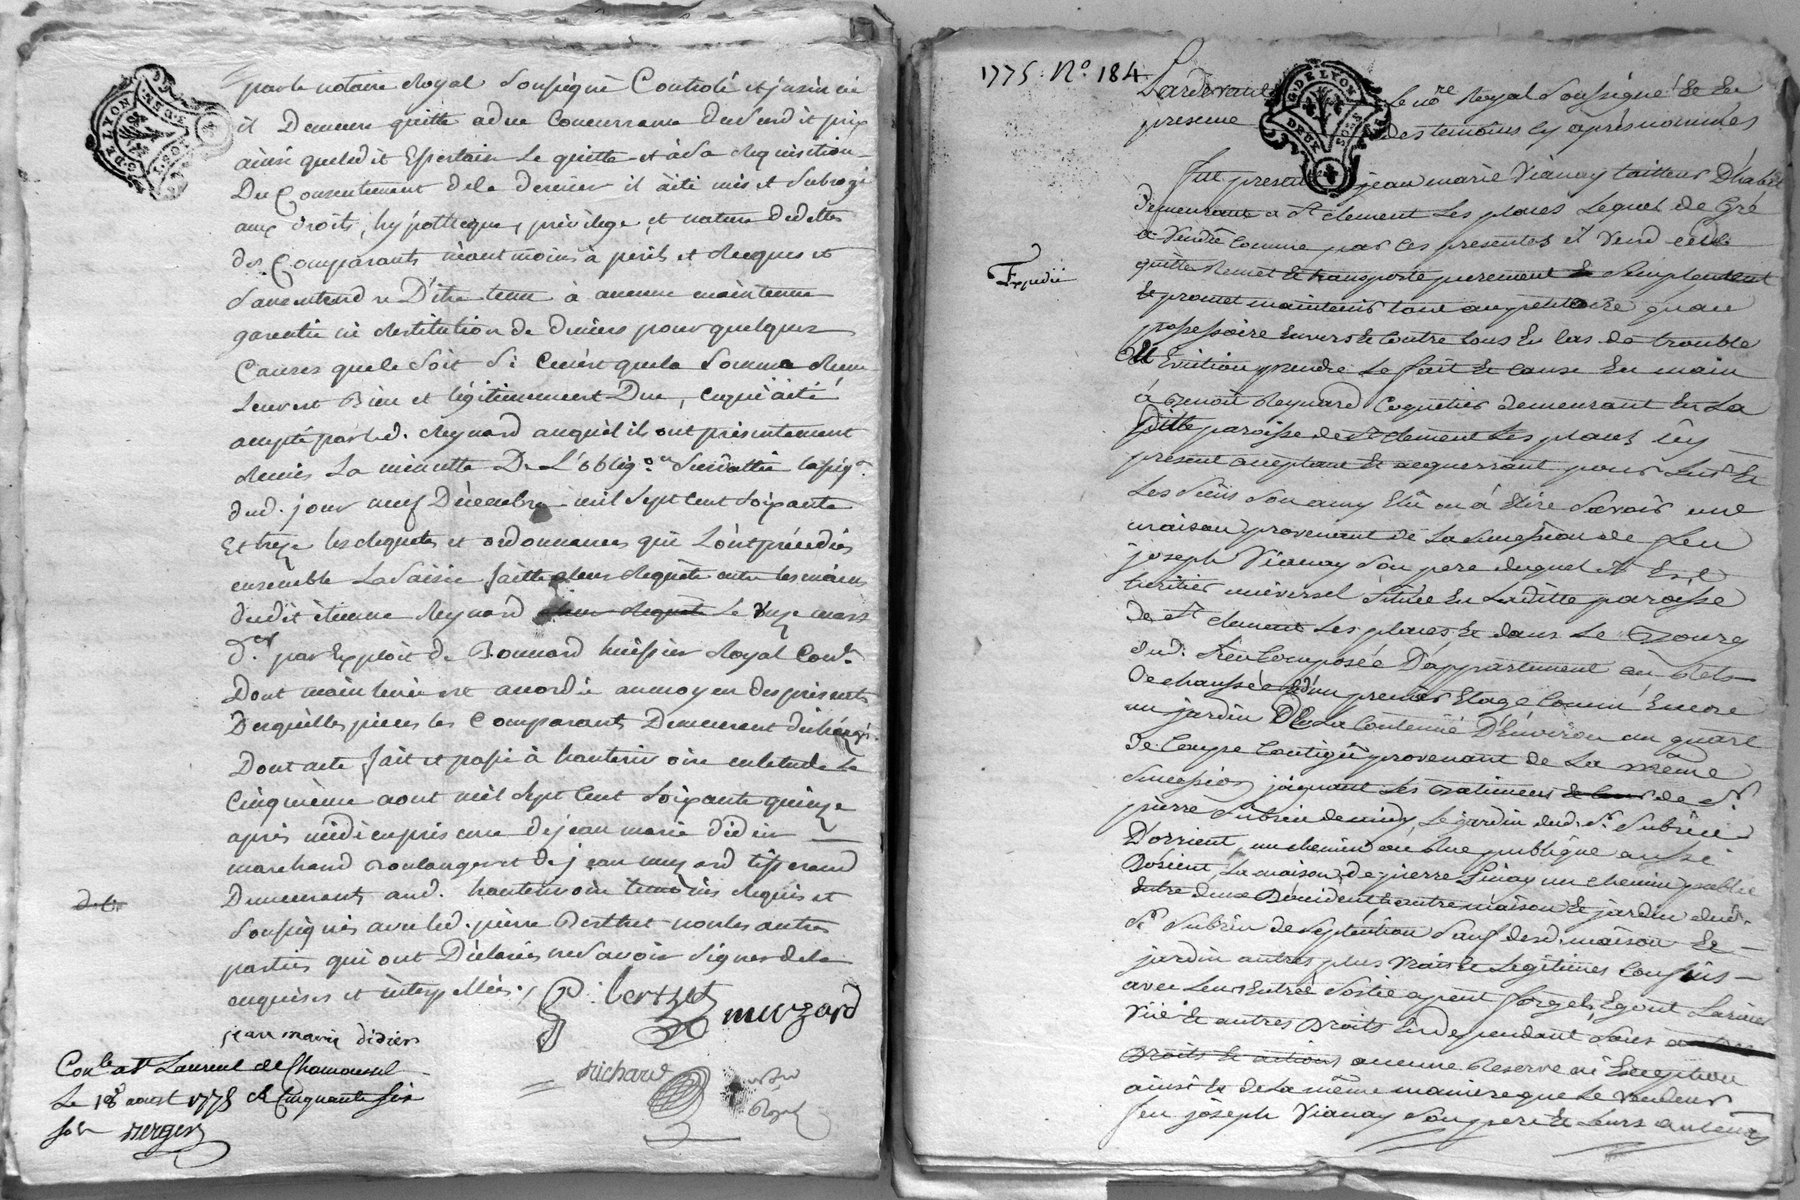 par le notaire Royal soussigné Controlé et jasin ni
il Demeure quitte a due Concurrance Dud. prix
ainsi queledit Esperlain le quitte et à sa Requisition
Du Consentement de le dernier il à été mis et subrogé
aux droits, hypotheque, privilege, et nature de dettes
des Comparants neantmoins à perils et Risques et
sans entendre D'être tenu à aucune maintenue
garentie ni Restitution de deniers pour quelques
Causes que le soit si ce n'est que la somme Reçue
leur est Bien et légitimement Due, ce qui à été
accepté par led. Reynard auquel ils ont présentement
Remis la minutte De L'oblig.on
dud. jour neuf Décembre mil sept cent soixante
et treze les Requetes et ordonnances qui L'ont précédées
ensemble La saisie faitte à leur Requete entre les mains
dudit étienne Reynard le onze mars
d.er par Exploit de Bonnard huissier Royal Con.lé
Dont main levée est accordée au moyen des presentes
Desquelles pieces les Comparants Demeurent déchargés
Dont acte fait et passé à hauterivoire en letude le
cinquieme aout mil sept cent soixante quinze
après midi en presence de jean marie didier
marchand Boulanger et de jean muzard tisserand
Demeurants aud. hauterivoire temoins Requis et
soussignés avec led. pierre Berthet non les autres
parties qui ont Déclarés ne savoir signer de ce
enquises et interpellées.
P. berthet
muzard
jean marie didier
Richard
not.re
Royal
Con.le a St Laurent de Chamousset
Le 18 aoust 1775 R. Cinquante six
sols
1775. N.o 184
Pardevant Le no.re Royal Soussigné Et En
presence des temoins Cy aprés nommés
Fut present jean marie Vianay tailleur D'habit
Demeurant a S.t clement Les places Lequel de Gré
a vendu comme par ces presentes il vend cede
quitte Remet Et transporte purement Et simplement
Et promet maintenir tant au petitoire qu'au
possessoire Envers Et Contre tous En Cas de trouble
Et Eviction prendre Le fait Et cause En main
à Benoît Reynard Coquetier demeurant En La
ditte paroisse de S.t clement Les places icy
present acceptant Et acquerrant pour Lui Et
Les siens son amy Elû ou á Elire Savoir une
maison provenant de La succession de feu
joseph Vianay son pere duquel il Est
heritier universel située En Laditte paroisse
de S.t clement Les places Et dans Le Bourg
dud. lieu Composée D'appartement au Rets
de chaussée Et d'un premier Etage Comm' Encore
un jardin De La Contenüe D'Environ un quart
de Coupe Contigü provenant de La même
succession joignant Les Batiments de S.r
pierre Subrin de midy, Le jardin dud. S.r Subrin
D'orrient, un chemin ou Rue publique aussi
Dorient, La maison de pierre Pinay un chemin public
Entre deux D'occident Et autre maison Et jardin dud.
S.r Subrin de septentrion sauf desd. maison Et
jardin autres plus vrais Et Legitimes Confins
avec Leurs Entrée Sortie
Vüe Et autres Droits En dependant sans
aucune Reserve ni Exception
ainsi Et de La même maniere que Le vendeur
feu joseph Vianay son pere Et Leurs auteurs
Expedié